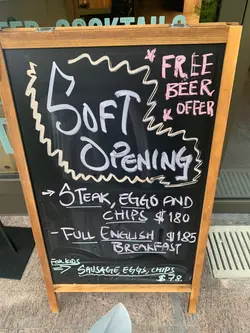 COCKTAILS
FREE
BEER
OFFER
SOFT
OPENING
→ STEAK, EGGO AND
CHIPS $180
- FULL ENGLISH $185
BREAKFAST
FOR KIDS
⇒ SAUSAGE, EGGS, CHIPS
$78